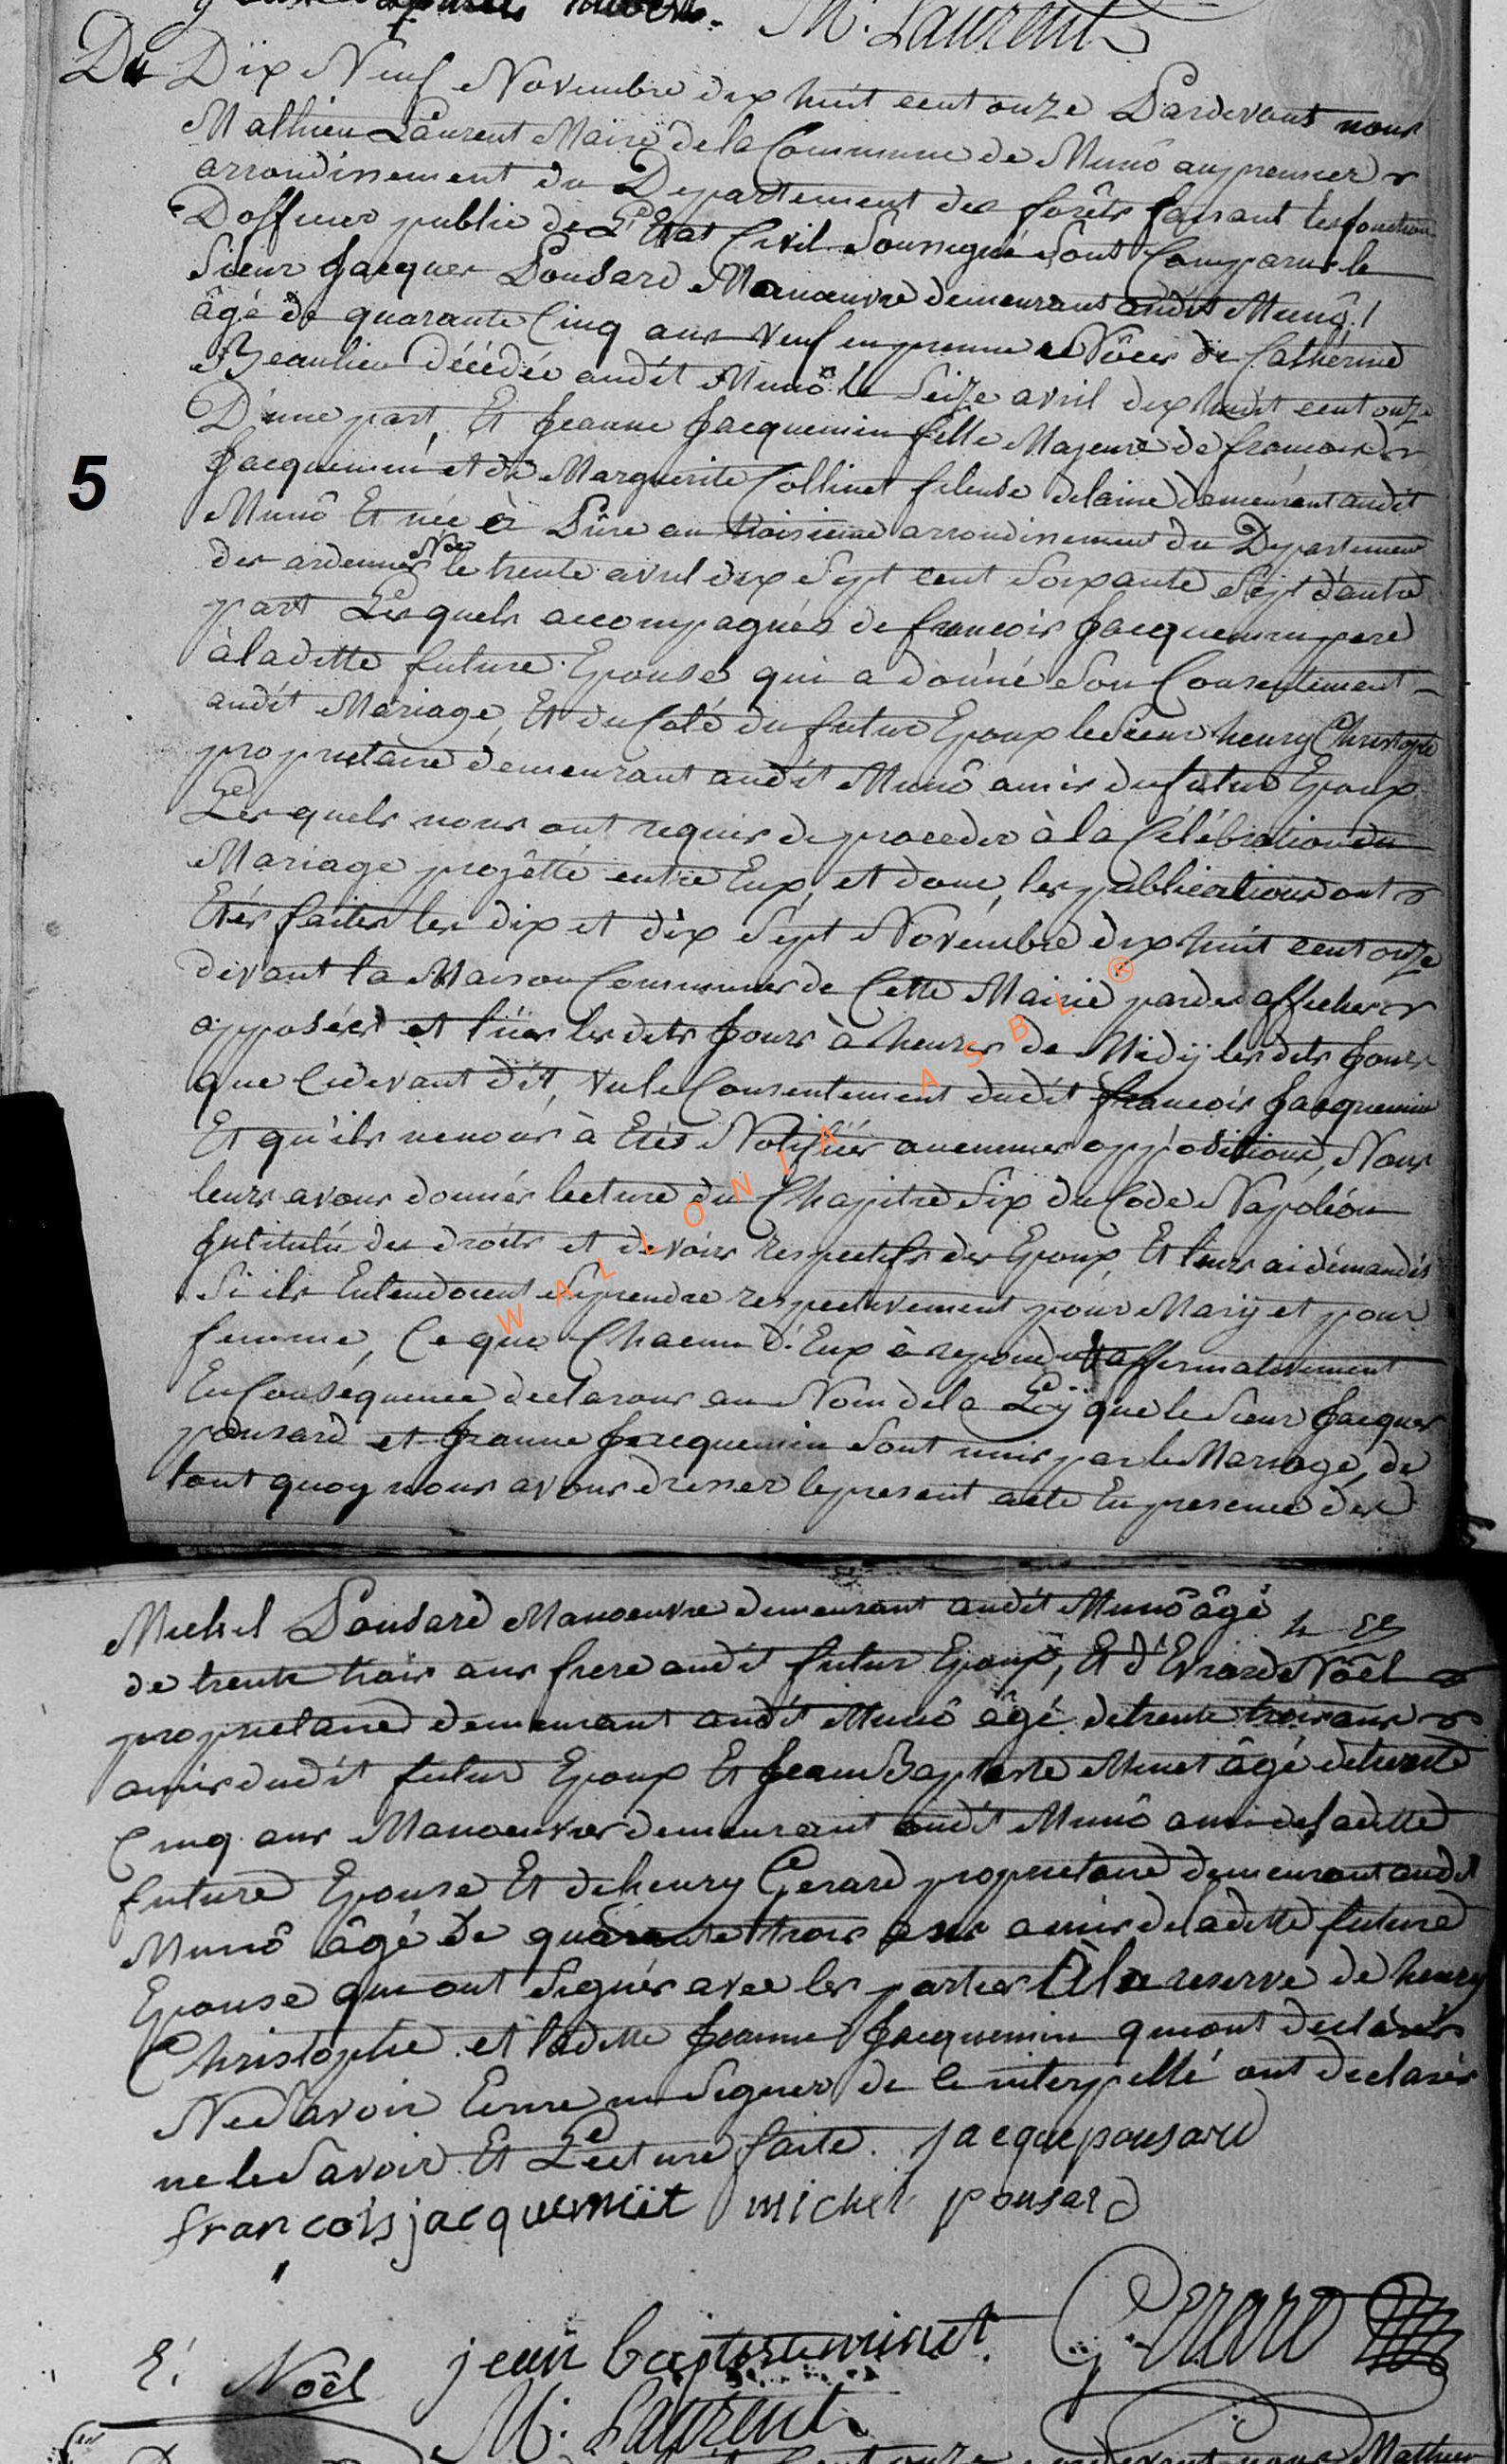 M. Laurent
Du Dix Neuf Novembre dix huit cent onze Pardevant nous
Mathieu Laurent Maire de la Commune de Munô au premier
arrondissement du Departement des forêts faisant les fonctions
D'officier public de L'Etat Civil Soussigné Sont Comparus le
Sieur Jacques Pousard Manœuvre demeurant audit Munô
âgé de quarante Cinq ans Veuf en premiere Nôces de Cathérine
Beaulieu Décédée audit Munô le Seize avril dix huit cent onze
D'une part, Et Jeanne Jacquemin fille Majeure de francois
Jacquemin et de Marguerite Collinet fileuse de laine demeurant audit
5
Munô Et née à Pûre au troisieme arrondissement du Departement
des ardennes Née le trente avril dix Sept cent Soixante Sept d'autre
part Lesquels accompagnés de francois Jacquemin pere
à laditte future Epouse qui a donné Son Consentement
audit Mariage, Et du Coté du futur Epoux le Sieur henry Christophe
proprietaire demeurant audit Munô amis du futur Epoux
Lesquels nous ont requis de proceder à la Célébration du
Mariage projétté entre Eux, et dont, les publications ont
Etés faites les dix et dix Sept Novembre dix huit cent onze
devant la Maison Commune de Cette Mairie par des affiches
apposées et lües les dits Jours à heures de Midÿ les dits Jours
que Cidevant dit, vu le Consentement dudit francois Jacquemin
Et qu'ils ne nous à Etés Notifiés aucunes oppositions, Nous
leurs avons donnés lecture du Chapitre Six du Code Napoléon
Intitulé des droits et devoirs respectifs des Epoux, Et leurs ai démandés
Si ils Entendoient Se prendre respectivement pour Marÿ et pour
femme, Ce que Chacun d'Eux à repondu affirmativement
En Conséquence declarons au Nom de la Loÿ que le Sieur Jacques
pousard et Jeanne Jacquemin Sont unis par le Mariage, de
tout quoy nous avons dresser le present acte En presence des
WALLONIA ASBL ®
Michel Pousard Manoeuvre demeurant audit Munô âgé
de trente trois ans frere audit futur Epoux, Et d'Evrard Nôël
proprietaire demeurant audit Munô âgé de trente trois ans
amis dudit futur Epoux Et Jean Baptiste Minet âgé de trente
Cinq ans Manoeuvre demeurant audit Munô ami de laditte
future Epouse Et de henry Gerard proprietaire demeurant audit
Munô âgé de quarante trois ans amis de ladite future
Epouse qui ont Signés avec les parties À la reserve de henry
Christophe et laditte Jeanne Jacquemin qui ont declarés
Ne Savoir Ecrire ni Signer de ce interpellé ont declarés
ne le Savoir Et Lecture faite. jacque pousard
francois jacquemiit michel pousard
E. Noêl jean baptiste minet. Gerard
M. Laurent